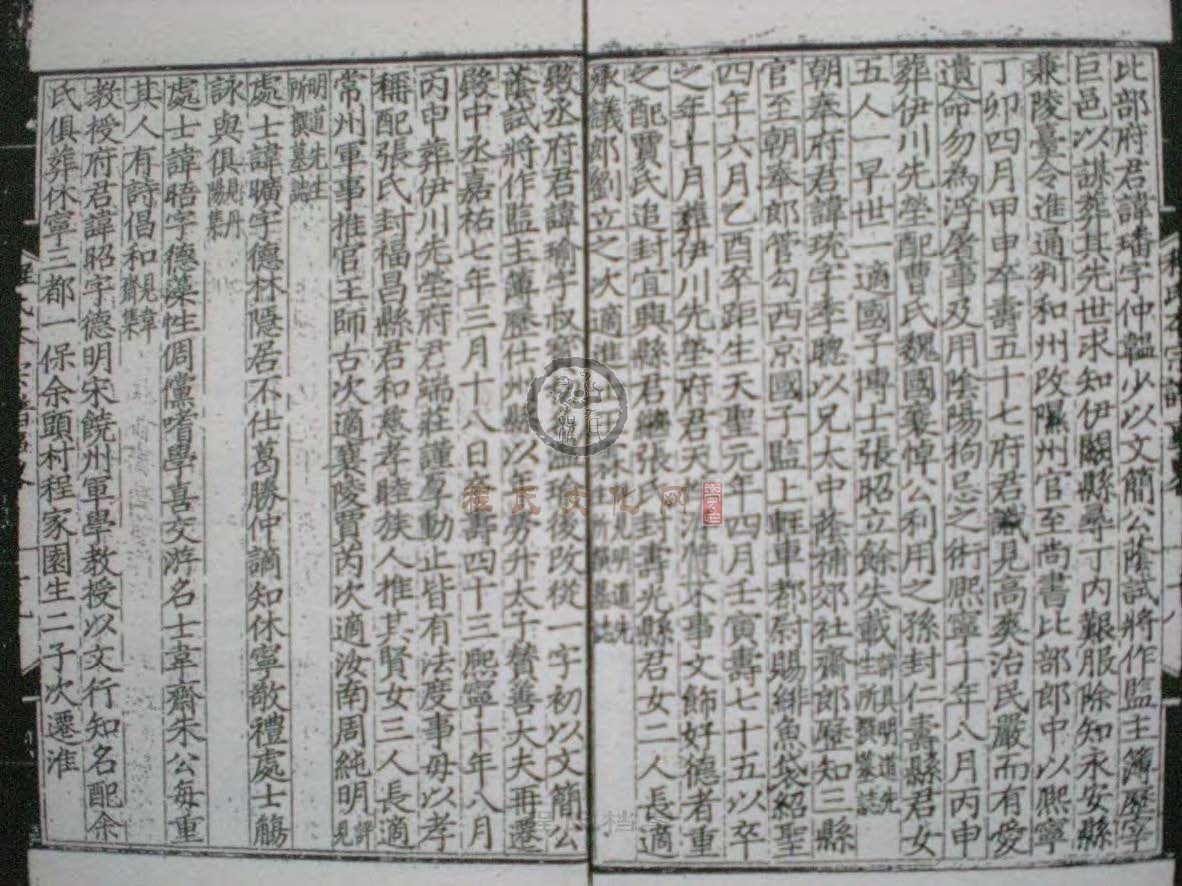 比部府君諱璠字仲韞少以文簡公蔭試將作監主簿歷宰
巨邑以謀葬其先世求知伊闕縣尋丁內艱服除知永安縣
兼陵臺令進通判和州改隰州官至尚書比部郎中以熙寧
丁卯四月甲申卒壽五十七府君識見高爽治民嚴而有愛
遺命勿為浮屠事及用陰陽拘忌之術熙寧十年八月丙申
葬伊川先塋配曹氏魏國襄悼公利用之孫封仁壽縣君女
五人一早世一適國子博士張昭立餘失載詳具明道先生所撰墓誌
朝奉府君諱珫字季聰以兄太中蔭補郊社齋郎歷知三縣
官至朝奉郎管勾西京國子監上輕車都尉賜緋魚袋紹聖
四年六月乙酉卒距生天聖元年四月壬寅壽七十五以卒
之年十月葬伊川先塋府君天 不事文飾好德者重
之配賈氏追封宜興縣君繼張氏封壽光縣君女二人長適
承議郎劉立之次適進士 見明道先生所撰墓誌
殿丞府君諱瑜字叔 瑜後改從一字初以文簡公
蔭試將作監主簿歷仕州縣以年勞升太子贊善大夫再遷
殿中丞嘉祐七年三月十八日卒壽四十三熙寧十年八月
丙申葬伊川先塋府君端莊謹厚動止皆有法度事母以孝
稱配張氏封福昌縣君和慈孝睦族人推其賢女三人長適
常州軍事推官王師古次適襄陵賈芮次適汝南周純明詳見
明道先生所撰墓誌
處士諱曠字德林隱居不仕葛勝仲謫知休寧敬禮處士觴
詠與俱見丹陽集
處士諱晤字德藻性倜儻嗜學喜文游名士韋齋朱公每重
其人有詩倡和見韋齋集
教授府君諱昭字德明宋饒州軍學教授以文行知名配余
氏俱葬休寧三都一保余頭村程家園生二子次遷淮
程氏文化网